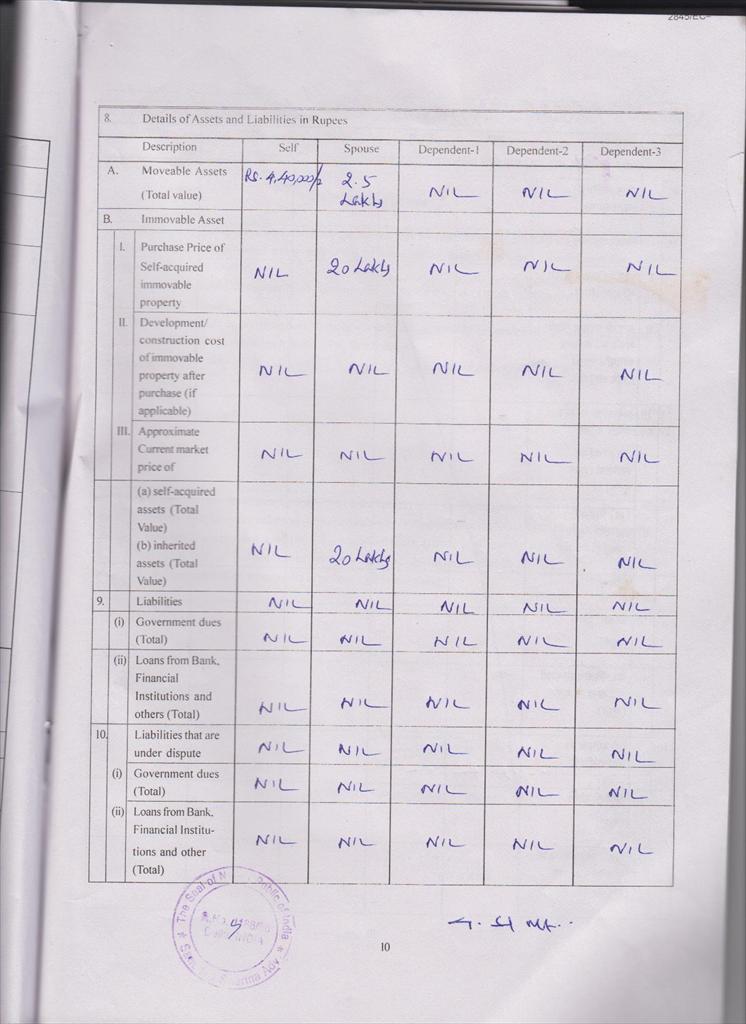 2845/EC-
8. Details of Assets and Liabilities in Rupees
Description Self Spouse Dependent-1 Dependent-2 Dependent-3
A. Moveable Assets (Total value) Rs. 4,40,000/- 2.5 Lakhs NIL NIL NIL
B. Immovable Asset
I. Purchase Price of
Self-acquired NIL 20 Lakhs NIL NIL NIL
immovable
property
II. Development/
construction cost
of immovable
property after NIL NIL NIL NIL NIL
purchase (if
applicable)
III. Approximate
Current market NIL NIL NIL NIL NIL
price of
(a) self-acquired
assets (Total
Value)
(b) inherited NIL 20 Lakhs NIL NIL NIL
assets (Total
Value)
9. Liabilities NIL NIL NIL NIL NIL
(i) Government dues
(Total) NIL NIL NIL NIL NIL
(ii) Loans from Bank,
Financial
Institutions and
others (Total) NIL NIL NIL NIL NIL
10. Liabilities that are
under dispute NIL NIL NIL NIL NIL
(i) Government dues
(Total) NIL NIL NIL NIL NIL
(ii) Loans from Bank,
Financial Institu-
tions and other NIL NIL NIL NIL NIL
(Total)
The Seal of Public of India
INDIA
10